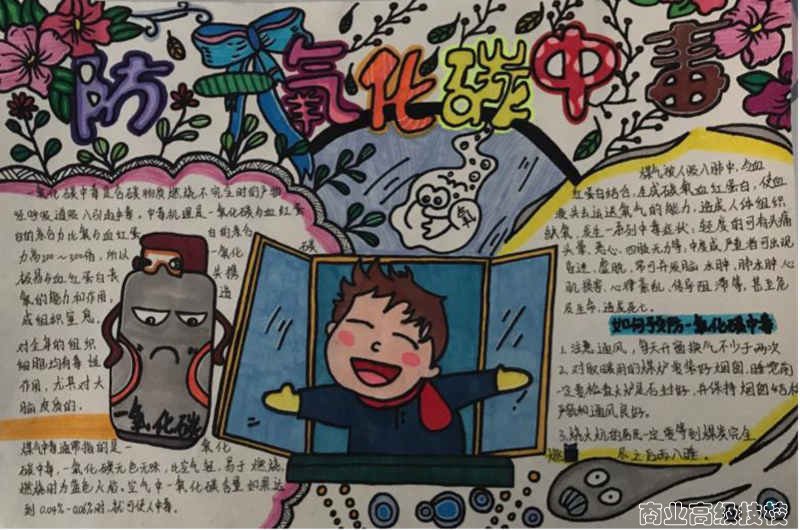 防一氧化碳中毒
氧
一氧化碳中毒是含碳物质燃烧不完全时的产物
经呼吸道吸入引起中毒,中毒机理是一氧化碳与血红蛋
白的亲合力比氧与血红蛋白的亲合
力高200~300倍,所以一氧化碳
极易与血红蛋白
氧的能力和作用,造
成组织窒息。
对全身的组织
细胞均有毒性
作用,尤其对大
脑皮质的。
一氧化碳
煤气中毒通常指的是一氧化
碳中毒,一氧化碳无色无味,比空气轻,易于燃烧,
燃烧时为蓝色火焰。空气中一氧化碳含量如果达
到0.04%-0.06%时就可使人中毒。
煤气被人吸入肺中,与血
红蛋白结合,生成碳氧血红蛋白,使血
液失去运送氧气的能力,造成人体组织
缺氧,发生一系列中毒症状;轻度的可有头痛
头晕、恶心、四肢无力等,中度或严重者可出现
昏迷、虚脱,常可并发脑水肿、肺水肿、心
肌损害、心律紊乱、传导阻滞等,甚至危
及生命,造成死亡。
如何预防一氧化碳中毒
1.注意通风,每天开窗换气不少于两次
2.对取暖用的煤炉要装好烟囱,睡觉前
一定要检查火炉是否封好,并保持烟囱结构
严密和通风良好。
3.烧火炕的居民一定要等到煤炭完全
燃 尽之后再入睡。
商业高级技校